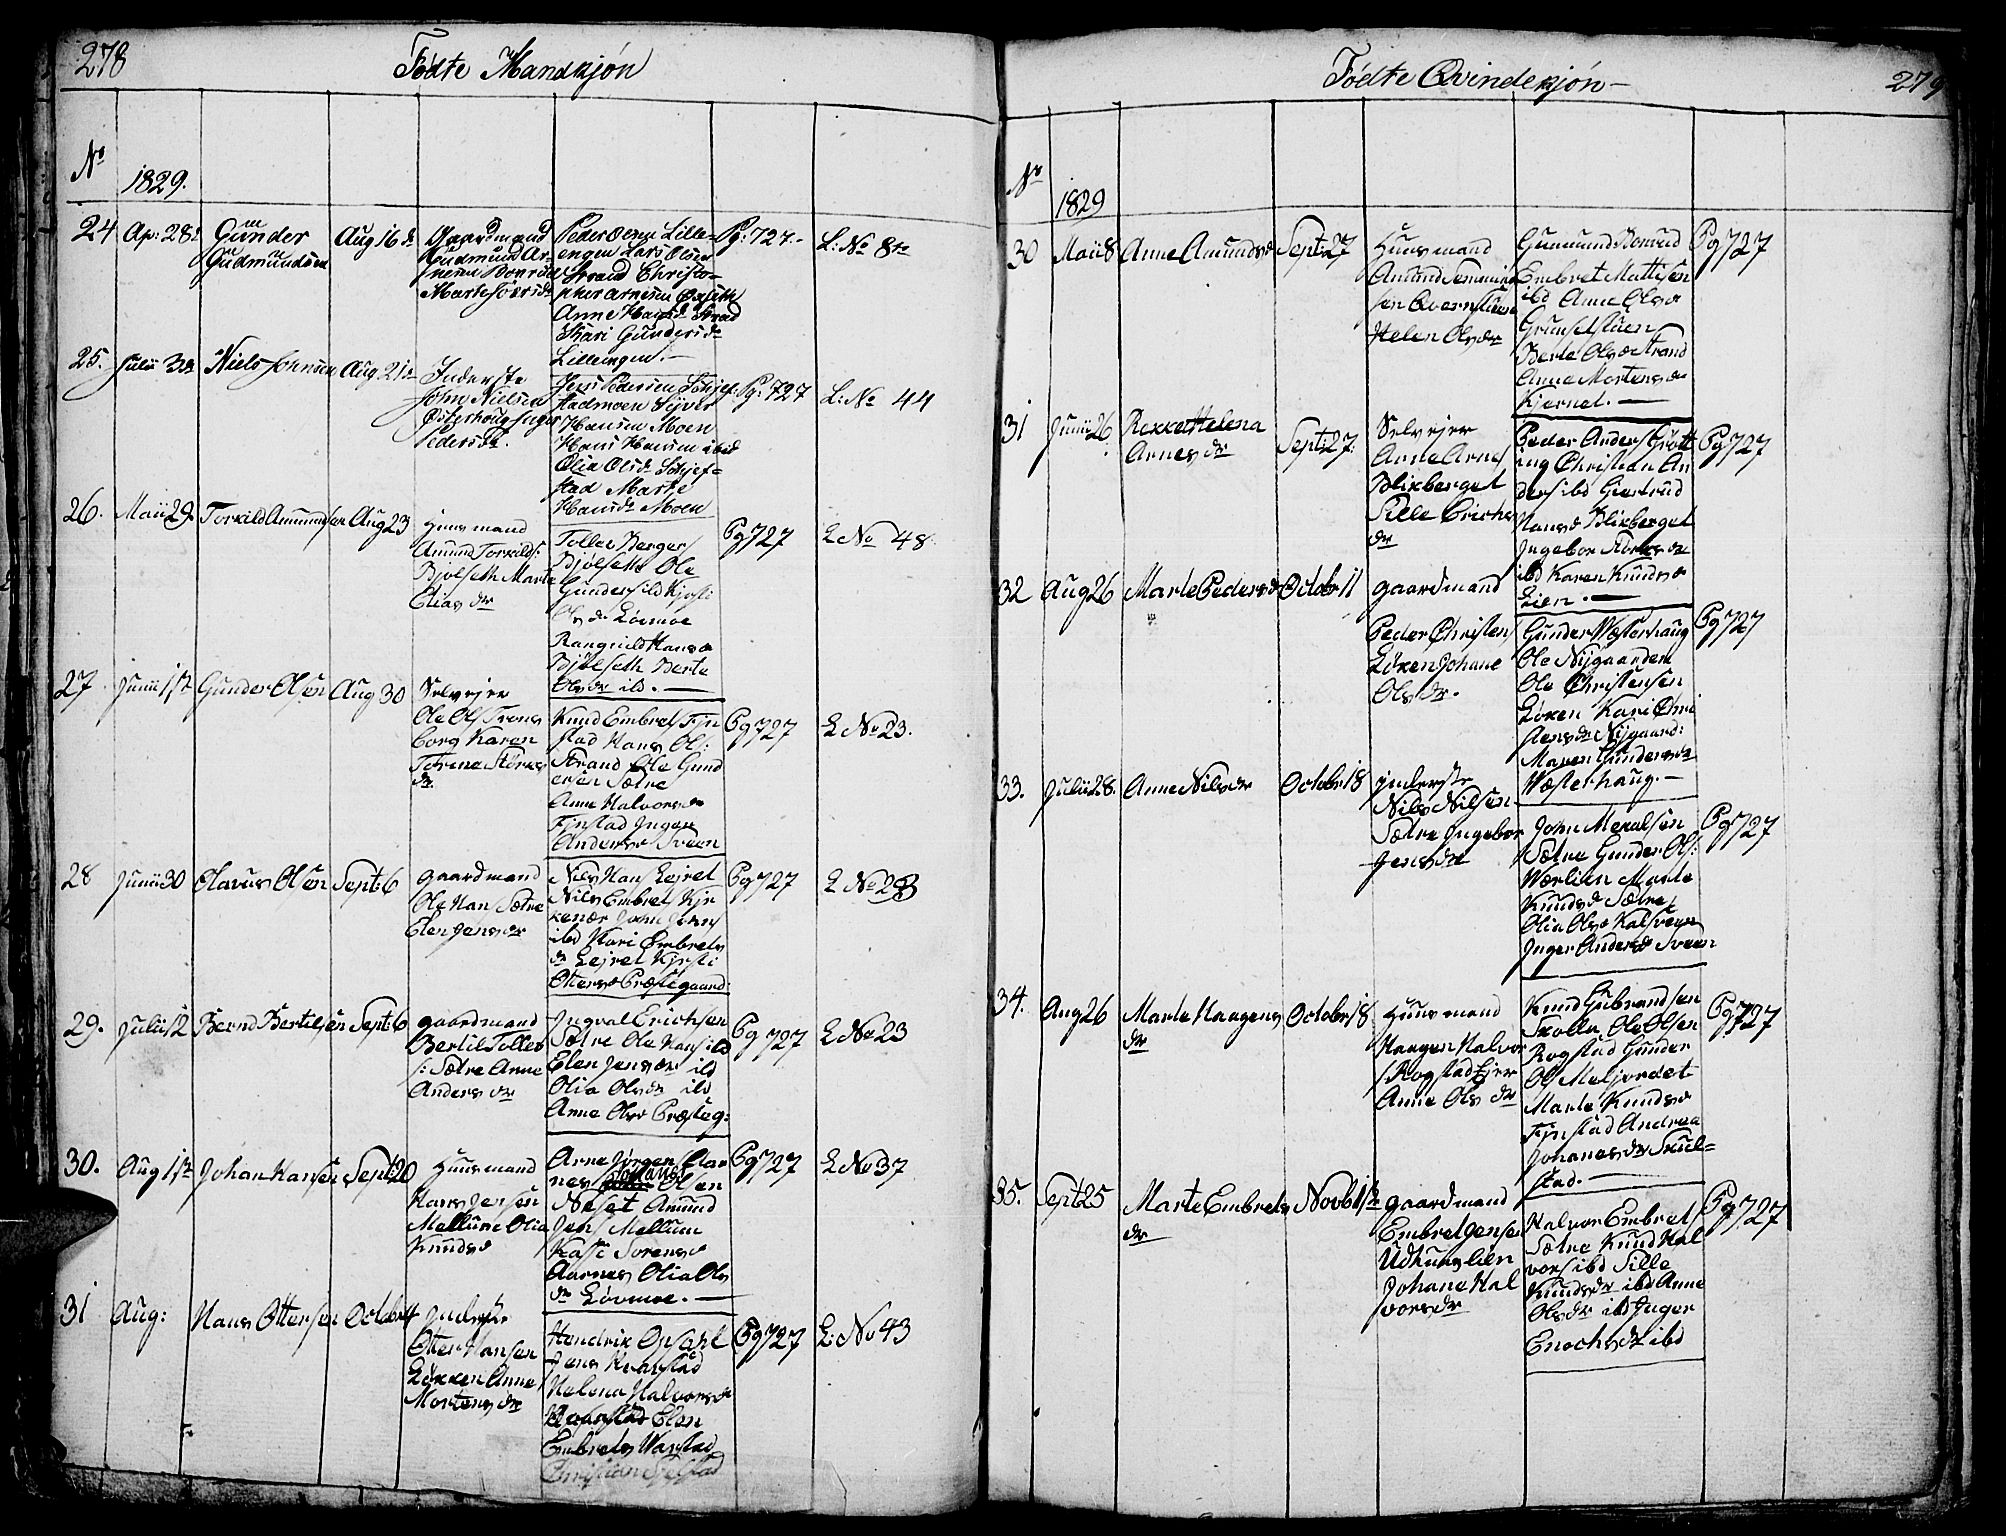 278
Fødte Mandkjön
No
1829.
24 Ap: 28de Gunder Gudmundsen Aug 16de
Gaardmand
Gudmund Ar-
nesen Bonrud
Marte Siversdr
Peder Olsen Lille-
engen Lars Olsen
Strand Christo-
pher Arnesen
Anne Hansdr Strad
Kari Gundersdr
Lilleengen. —
Pg: 727.
L: No 8de
25. Julii 3de Niels Johnsen Aug. 21de
Inderste
John Nielsen
Østerhoug Inger
Pedersdr.
Jens Pedersen
stadmoen Syver
Hansen Moen
Hans Hansen ibid
Olia Olsdr
stad Marte
Hansdr Moen
Pg: 727
L: No 44
26. Maii 29. Torkild Amundsen Aug 23
Huusmand
Amund Torkilds:
Bjølseth Marte
Elias dr
Tollev Berger
Bjølseth Ole
Gunders ibd Kjrsti
Ols dr Lövmoe
Rangnild Hansd
Bjölseth Berte
Olsdr ibd. —
Pg 727
L No 48
27 Junii 1ste Gunder Olsen Aug 30
Selvejer
Ole Ols Trons
borg Karen
Torine Störes
dr
Knud Embrets Fjn
stad Hans Ols:
Strand Ole Gund
ersen Sætre
Anne Halvorsdr
Fjnstad Inger
Andersd Sveen
Pg 727
L No 23.
28 Junii 30 Olavus Olsen Sept: 6
gaardmand
Ole Hans Sætre
Elen Jens dr
Nils Hans Lejret
Nils Embret Kjr
kenær John Johns
ibd Kari Embrets
dr Lejret Kjrsti
Ottersd Præstegaard:
Pg 727
L No 23
29. Julii 12 Bernd Bertilsen Sept: 6
gaardmand
Bertil Tollev
s: Sætre Anne
Anders dr
Ingval Erichsen
Sætre Ole Hans ibd
Elen Jensdr ibd
Olia Olsdr ibd
Anne Olsd Præsteg:
Pg 727
L No 23
30. Aug 1ste Johan Hansen Sept 20
Huusmand
Hans Jensen
Mellum Olia
Knudsd
Arne Jörgens Aar
nes Johanes Olsen
Neset Amund
Jens Mellum
Kasti Sorensd
Aarnes Olia Ols
dr Lövmoe. —
Pg 727
L No 37
31 Aug: Hans Ottersen October 4
Inderste
Otter Hansen
Løkken Anne
Mortens dr
Hendrik Opsahl
Jens Kvarstad
Helena Halvorsdr
Kvarstad Elen
Embrets Warstad
Christian
Pg 727
L: No 43
Födte Qvindekjön —
279
No
1829
30 Maii 8 Anne Amundsd Sept: 27
Huusmand
Amund Semming
sen Qvernstuen
Helen Olsdr
Gunmund Bonrud
Embret Mattisen
ibd Anne Olsd
Grundsetstuen
Berte Olsd Strand
Anne Mortensdr
Kjernet. —
Pg 727
31 Junii 26 Rekke Helena
Arnes dr
Sept: 27:
Selvejer
Arne Arnes
Blikberget
Sille Erichs
dr
Peder Anders Grøtt
ing Christian An
ders ibd Giertrud
Hansd Blikberget
Ingebor Störksdr
ibd Karen Knudsd
Lien. —
Pg 727
32 Aug 26 Marte Pedersdr October 11
gaardmand
Peder Christens
Løken Johane
Ols dr.
Gunder Wæsterhaug
Ole Nijgaarden
Ole Christensen
Løken Kari Chri
stensdr Nijgaard:
Maren Gundersdr
Wæsterhaug. —
Pg 727
33. Julii 28. Anne Nilsdr October 18
inderste
Nils Nilsen
Sætre Ingebor
Jensdr
John Mekalsen
Sætre Gunder Ols:
Wærlien Marte
Knudsd Sætre
Olia Olsd Kalsveen
Inger Andersd Sveen
Pg 727
34. Aug 26 Marte Haagens
dr
October 18
Huusmand
Haagen Halvor
s Rogstad Ejer
Anne Ols dr
Knud Gubrandsen
Skolla Ole Olsen
Rogstad Gunder
Ols Meljordet
Marte Knudsd
Fjnstad Andrea
Johanesdr Skul-
stad. —
Pg 727
35. Sept 25 Marte Embrets
dr
Novb 1ste
gaardmand
Embret Jensen
Udhuuslien
Johane Hal
vorsdr
Halvor Embret
Sætre Knud Hal
vors ibd Sille
Knudsdr ibd Anne
Olsdr ibd Inger
Enochsdr ibd
Pg 727